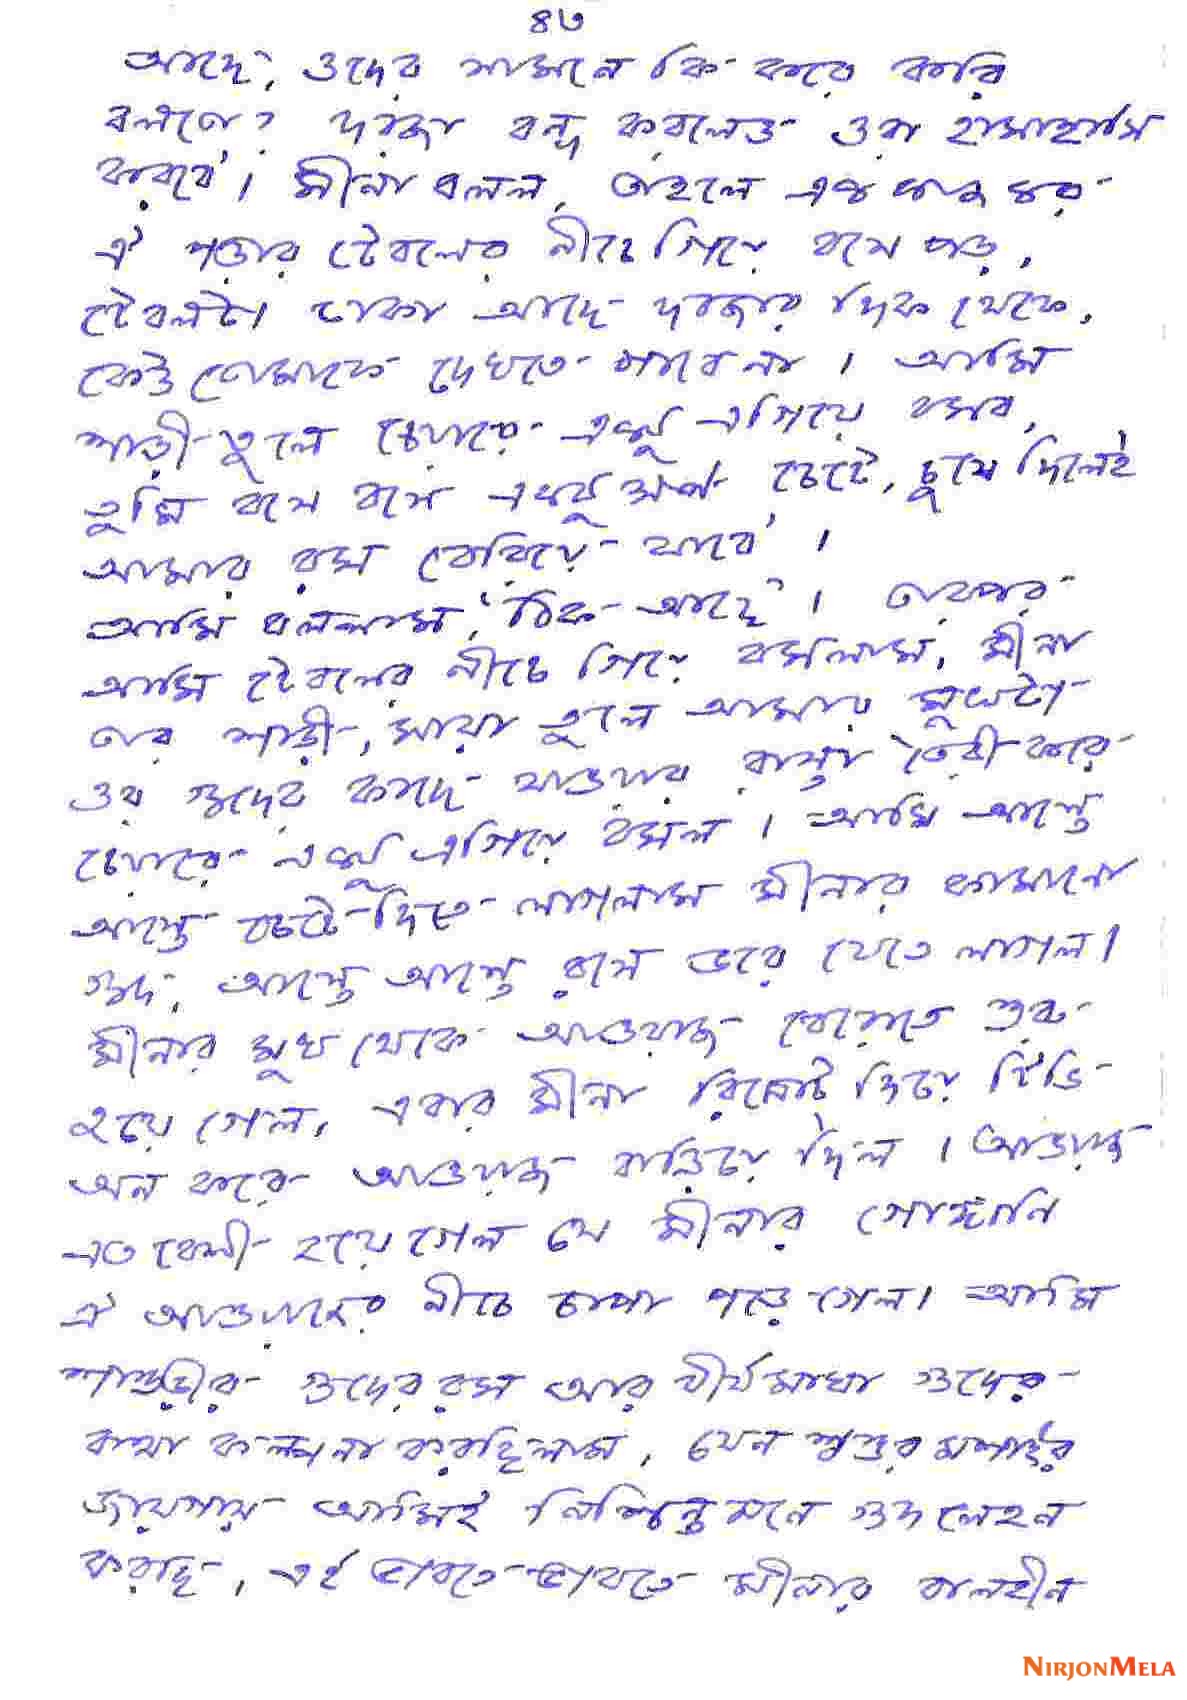 ৪৩
আছে, ওদের সামনে কি করে করি
বলতো? দরজা বন্ধ করলেও ওরা হাসাহাসি
করবে'। মীনা বলল, তাহলে এক কাজ কর
ঐ পড়ার টেবলের নীচে গিয়ে বসে পড়,
টেবলটা ঢাকা আছে দরজার দিক থেকে,
কেউ তোমাকে দেখতে পাবে না। আমি
শাড়ী তুলে চেয়ারে একটু এগিয়ে বসব,
তুমি বসে বসে একটু চেটে, চুষে দিলেই
আমার রস বেরিয়ে যাবে'।
আমি বললাম, 'ঠিক আছে'। তারপর
আমি টেবলের নীচে গিয়ে বসলাম, মীনা
তার শাড়ী, সায়া তুলে আমার মুখটা
ওর গুদের কাছে যাওয়ার রাস্তা তৈরী করে
চেয়ারে একটু এগিয়ে বসল। আমি আস্তে
আস্তে চেটে দিতে লাগলাম মীনার কামানো
গুদ, আস্তে আস্তে রসে ভরে যেতে লাগল।
মীনার মুখ থেকে আওয়াজ বেরোতে শুরু
হয়ে গেল, এবার মীনা রিমোট দিয়ে টিভি
অন করে আওয়াজ বাড়িয়ে দিল। আওয়াজ
এত বেশী হয়ে গেল যে মীনার গোঙ্গানি
ঐ আওয়াজের নীচে চাপা পড়ে গেল। আমি
শাশুড়ীর গুদের রস আর বীর্যমাখা গুদের
কথা কল্পনা করছিলাম, যেন শ্বশুর মশাইর
জায়গায় আমিই নিশ্চিন্ত মনে গুদ লেহন
করছি, এই ভাবতে ভাবতে মীনার বালহীন
NIRJONMELA